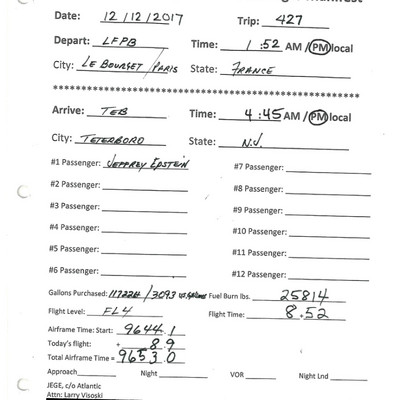 Date: 12/12/2017 Trip: 427
Depart: LFPB Time: 1:52 AM/PM local
City: LE BOURGET/PARIS State: FRANCE
************************************************************
Arrive: TEB Time: 4:45 AM/PM local
City: TETERBORO State: N.J
#1 Passenger: JEFFREY EPSTEIN #7 Passenger:
#2 Passenger: #8 Passenger:
#3 Passenger: #9 Passenger:
#4 Passenger: #10 Passenger:
#5 Passenger: #11 Passenger:
#6 Passenger: #12 Passenger:
Gallons Purchased: /3093 Fuel Burn lbs. 25814
Flight Level: FL4 Flight Time: 8.52
Airframe Time: Start: 9644.1
Today's flight: + 8.9
Total Airframe Time = 9653.0
Approach Night VOR Night Lnd
JEGE, c/o Atlantic
Attn: Larry Visoski